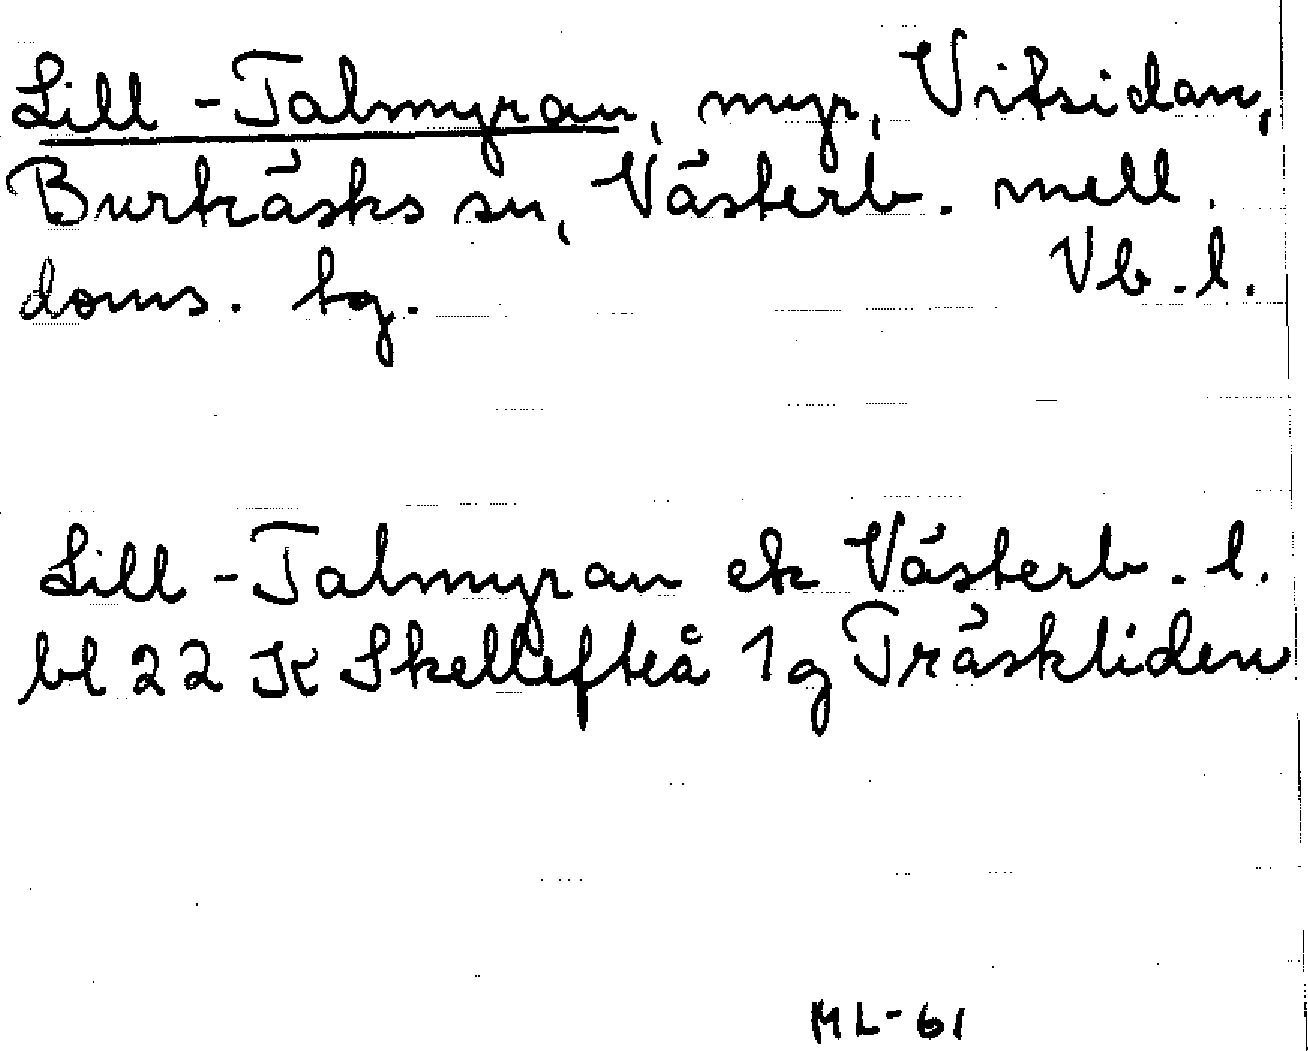 Lill-Talmyran, myr, Vitsidan,
Burträsks sn, Västerb. mell.
doms. tg. Vb. l.
Lill-Talmyran ek Västerb. l.
bl 22 K Skellefteå 1g Träskliden
ML-61